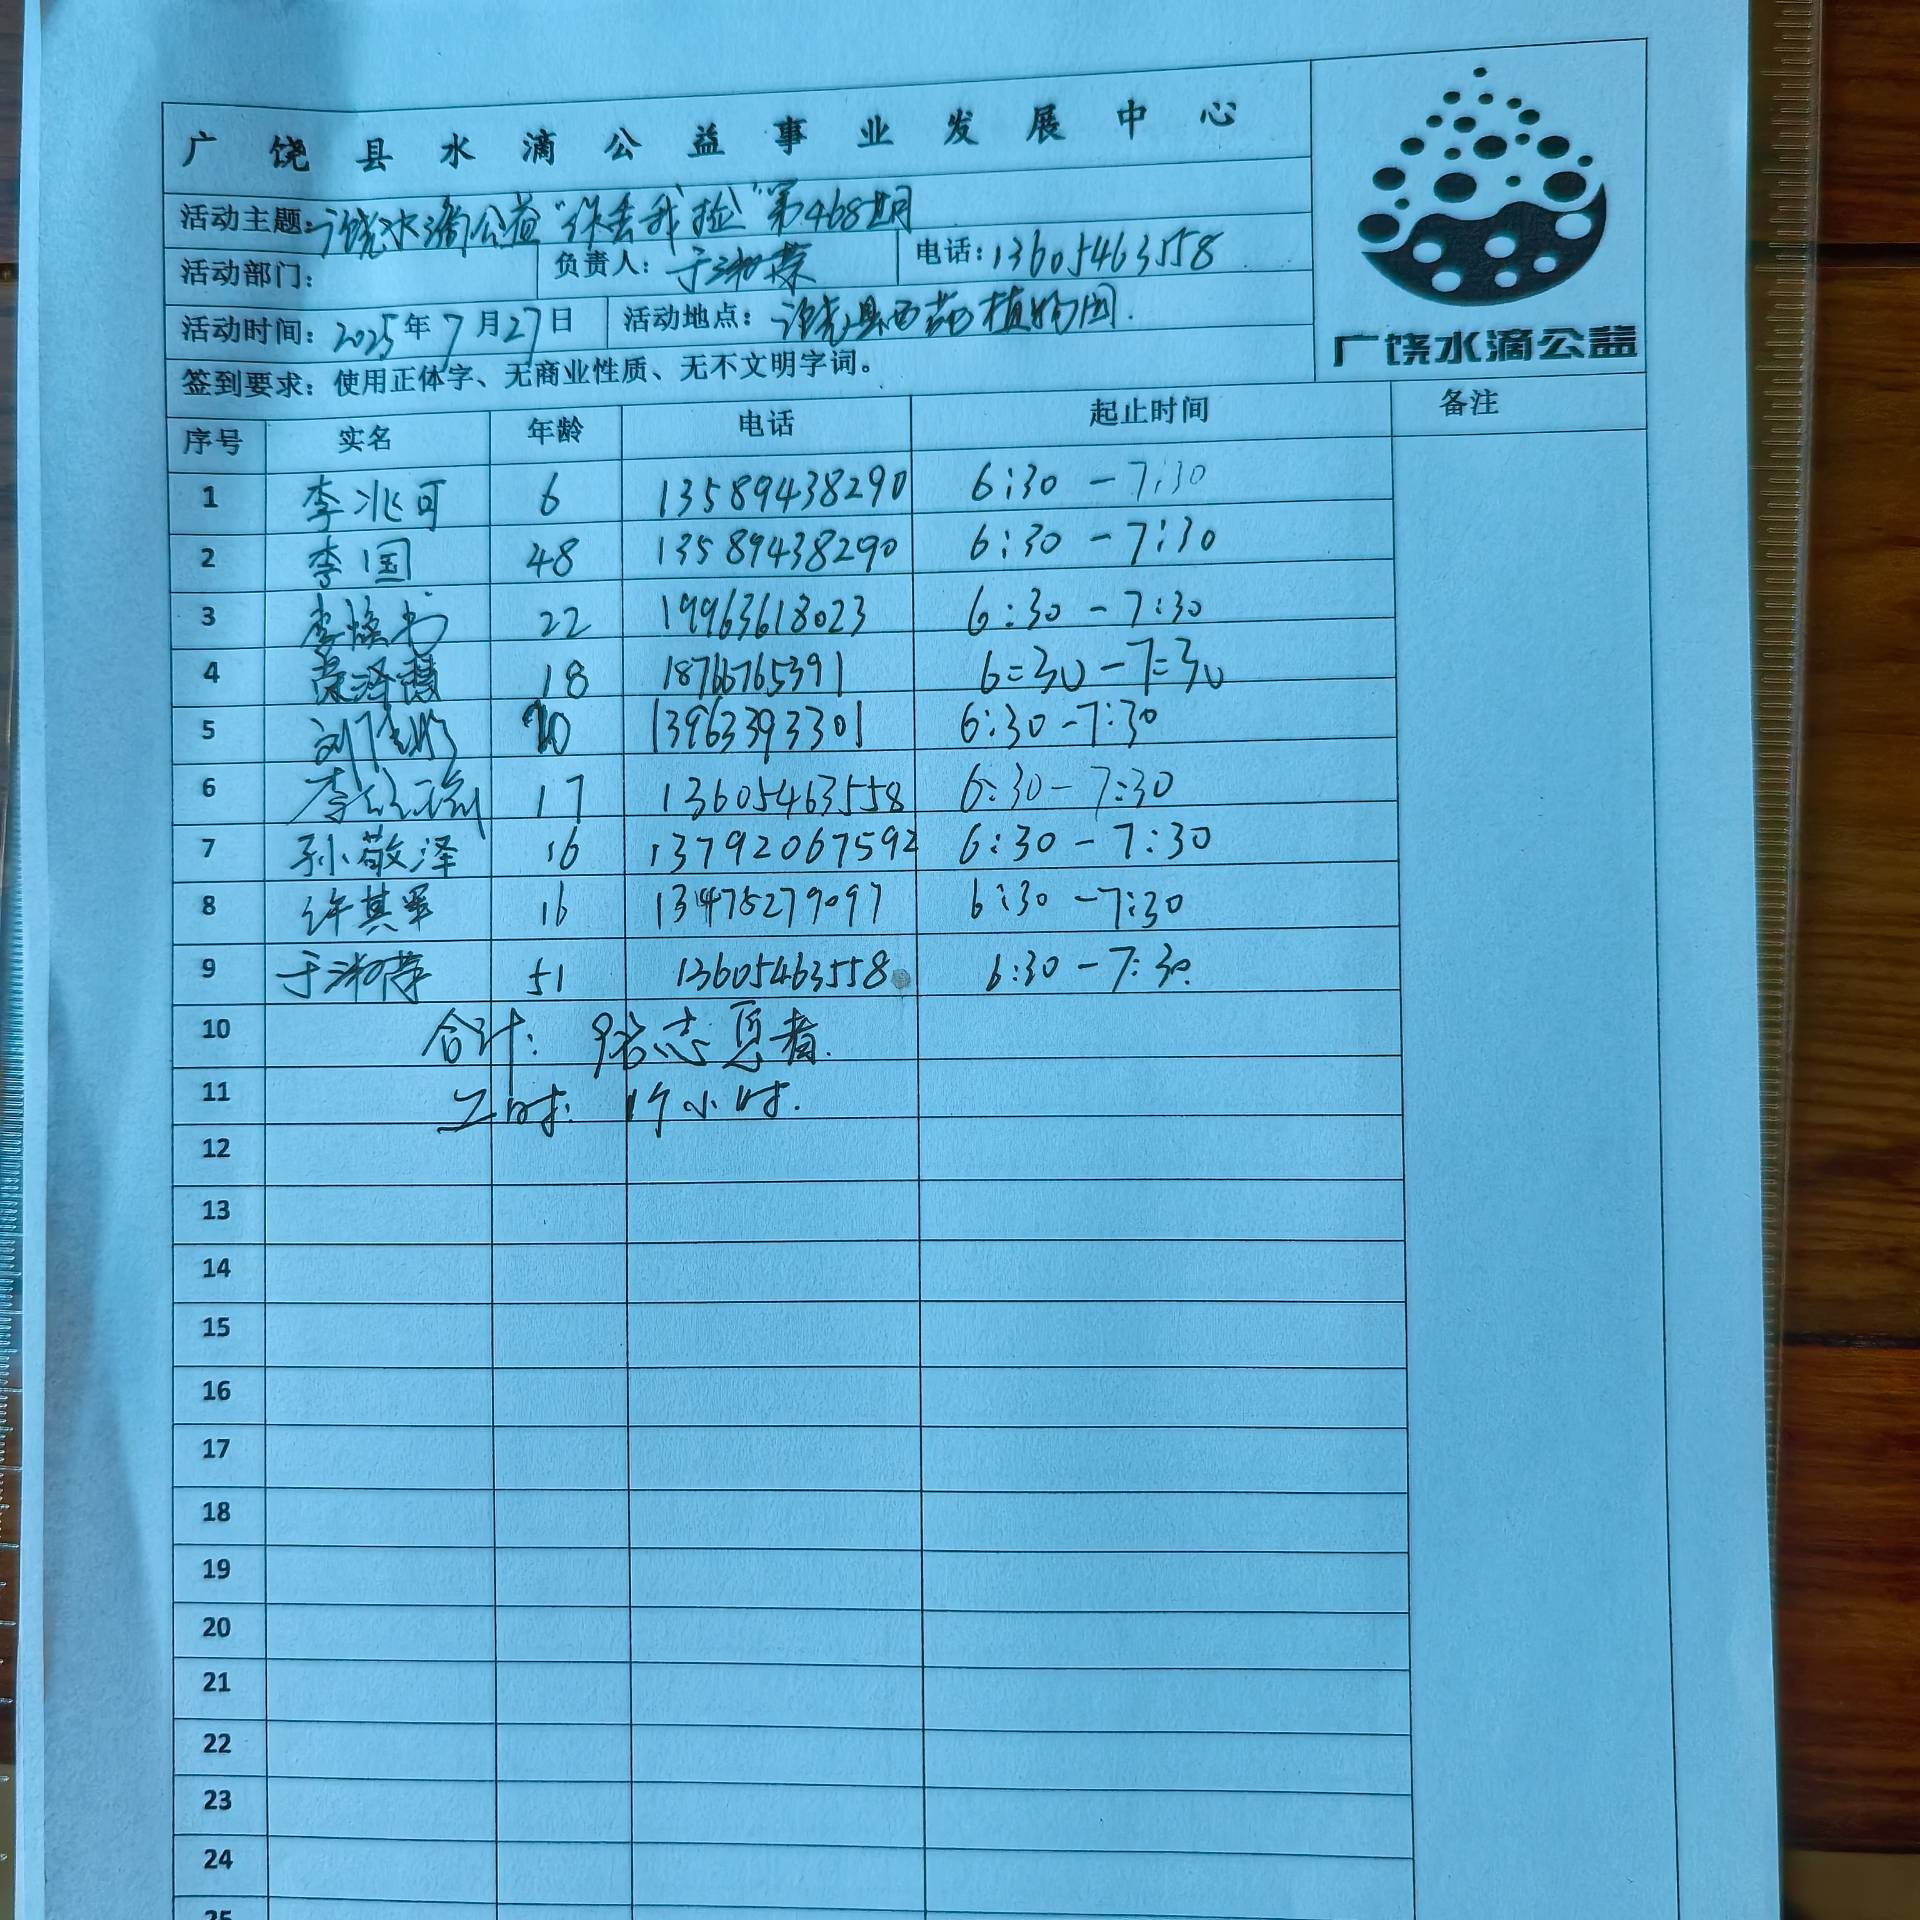 广饶县水滴公益事业发展中心
活动主题：广饶水滴公益“你丢我捡”第468期
活动部门： 负责人：于淑荣 电话：13605463558
活动时间：2025年7月27日 活动地点：广饶县西苑植物园.
签到要求：使用正体字、无商业性质、无不文明字词。
广饶水滴公益
序号 实名 年龄 电话 起止时间 备注
1 李兆可 6 13589438290 6:30-7:30
2 李国 48 13589438290 6:30-7:30
3 李焕书 22 19963618023 6:30-7:30
4 18 18766765391 6:30-7:30
5 13963393301 6:30-7:30
6 17 13605463558 6:30-7:30
7 孙敬泽 16 13792067592 6:30-7:30
8 许其军 16 13475279097 6:30-7:30
9 于淑荣 51 13605463558 6:30-7:30.
10 合计：9名志愿者.
11 工时： 小时.
12
13
14
15
16
17
18
19
20
21
22
23
24
25